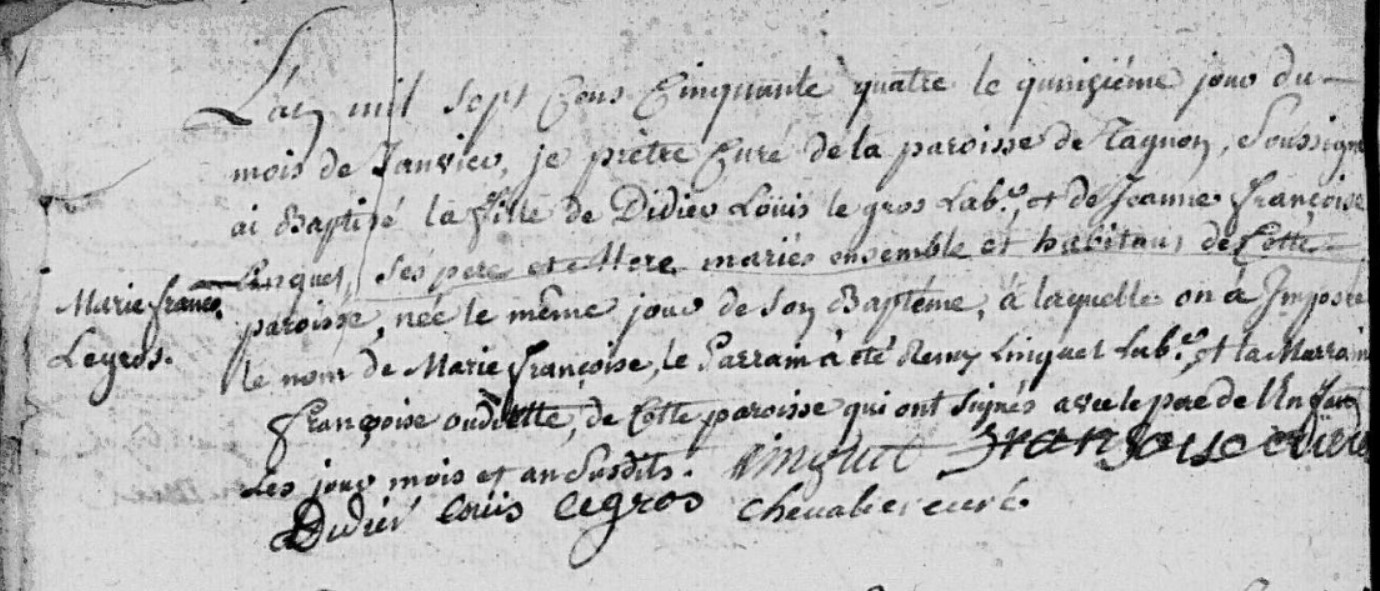 L'an mil sept Cens Cinquante quatre le quinziéme jour du
mois de Janvier, je prêtre Curé de la paroisse de Tagnon, Soussigné
ai Baptisé la fille de Didier Loüis le gros Lab.r, et de Jeanne Françoise
Linguet, Ses pere et Mere mariés ensemble et habitans de Cette
Marie franç.
paroisse, née le même jour de Son Baptême, à laquelle on a Imposée
Legros.
le nom de Marie Françoise, le Parrain à eté Remy Linguet Lab.r, et la Marraine
Françoise oudiette, de Cette paroisse qui ont Signés avec le pere de l'Enfant
Les jour mois et an Susdits. Linguet Françoise
Didier louis legros chevalier curé.